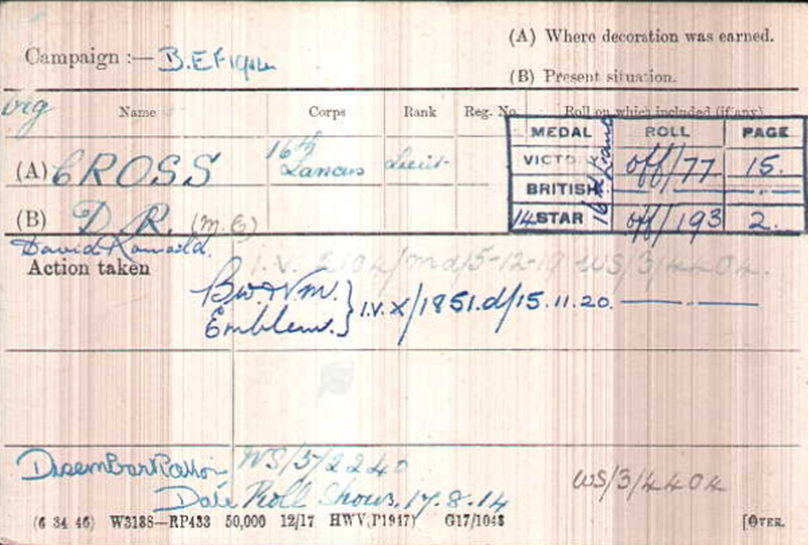 (A) Where decoration was earned.
Campaign :— B.E.F
(B) Present situation.
Name Corps Rank Reg. No. Roll on which included (if any)
MEDAL ROLL PAGE
(A) CROSS 16th Lancers Lieut. VICTO off/77 15.
BRITISH
(B) D. R. (M.C) 14 STAR off/193 2.
David Ronald.
Action taken I.V. 2104/md/5-12-19 WS/3/4404.
Bw. & Vm.
Emblem. } I.V.X/1851.d/15.11.20.
Disembarkation WS/5/2240
Date Roll Shows. 17.8.14 WS/3/4404
(6 34 46) W3188—RP433 50,000 12/17 HWV(P1947) G17/1043 [OVER.